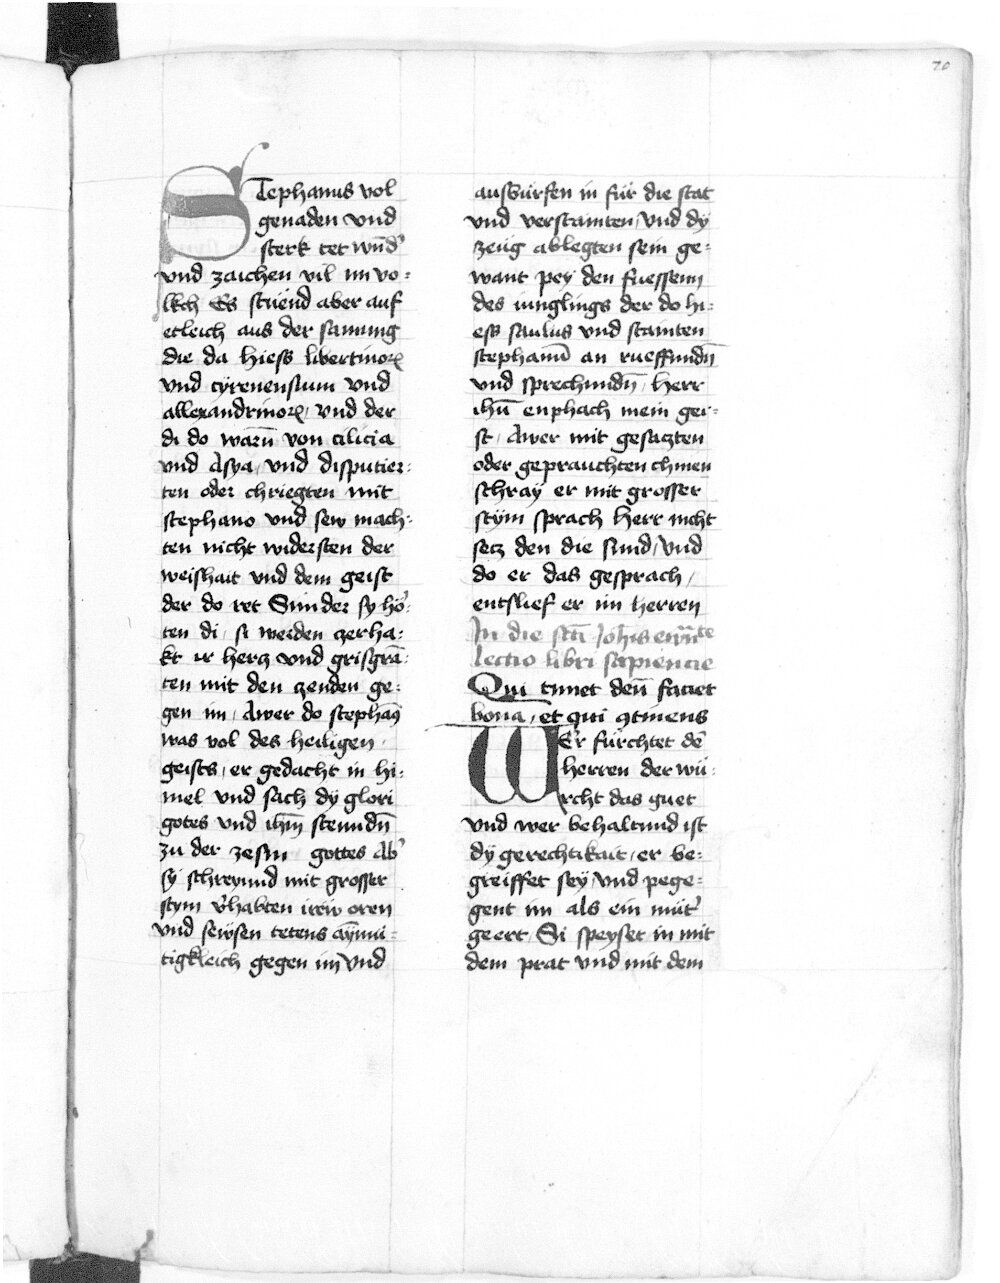 70
STephanus vol
genaden vnd
sterk tet wūd̾
vnd zaichen vil im vo⸗
lkch Es stuend aber auf
etleich aus der samūng
die da hiess libertinoꝝ
vnd cyrenensium vnd
allexandrinoꝝ / vnd der
di do warn̄ von cilicia
vnd Asya / vnd disputier⸗
ten oder chriegten mit
stephano vnd sew mach⸗
ten nicht widersten der
weishait vnd dem geist
der do ret Sunder sy hor̾⸗
ten di / si weiden czerha⸗
kt ir hercz vnd grisgrā⸗
ten mit den czenden ge⸗
gen im / Awer do stephan9
was vol des heiligen
geists / er gedacht in hi⸗
mel vnd sach dÿ glori
gotes vnd ihm̄ steundn̄
zu der zesm gottes Ab̾
sÿ schreyund mit grosser
stym v̾habten irew oren
vnd sewsen tetens aȳmu⸗
tigkleich gegen im vnd
auswurfen in für die stat
vnd verstainten / vnd dÿ
zeug ablegten sein ge⸗
want pey den fuessenn
des iunglings der do hi⸗
ess saulus vnd stainten
stephanū an rueffundn̄
vnd sprechundn̄ / herr
ihū enphach mein gei⸗
st / Awer mit gesaczten
oder geprauchten chnien
schraÿ er mit grosser
stÿm sprach herr nicht
secz den die sund / vnd
do er das gesprach /
entslief er im herren
In die scī Johīs ewāīste
lectio libri sapiencie
Qui timet deū faciet
bona / et qui ꝯtinens
WEr fürchtet dē
herren der wü⸗
rcht das guet
vnd wer behaltund ist
dÿ gerechtikait / er be⸗
greiffet seÿ vnd pege⸗
gent im als ein mūt̾
geert / Si speyset in mit
dem prat vnd mit dem